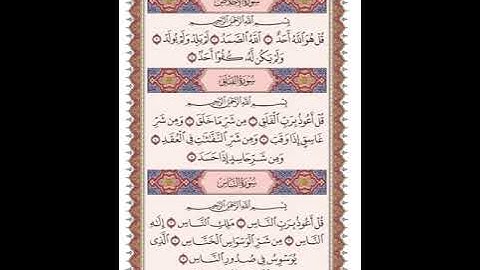 سورة الإخلاص
بسم الله الرحمن الرحيم
قُلْ هُوَ ٱللَّهُ أَحَدٌ ١ ٱللَّهُ ٱلصَّمَدُ ٢ لَمْ يَلِدْ وَلَمْ يُولَدْ ٣
وَلَمْ يَكُن لَّهُۥ كُفُوًا أَحَدٌۢ ٤
سورة الفلق
بسم الله الرحمن الرحيم
قُلْ أَعُوذُ بِرَبِّ ٱلْفَلَقِ ١ مِن شَرِّ مَا خَلَقَ ٢ وَمِن شَرِّ
غَاسِقٍ إِذَا وَقَبَ ٣ وَمِن شَرِّ ٱلنَّفَّـٰثَـٰتِ فِى ٱلْعُقَدِ ٤
وَمِن شَرِّ حَاسِدٍ إِذَا حَسَدَ ٥
سورة الناس
بسم الله الرحمن الرحيم
قُلْ أَعُوذُ بِرَبِّ ٱلنَّاسِ ١ مَلِكِ ٱلنَّاسِ ٢ إِلَـٰهِ
ٱلنَّاسِ ٣ مِن شَرِّ ٱلْوَسْوَاسِ ٱلْخَنَّاسِ ٤ ٱلَّذِى
يُوَسْوِسُ فِى صُدُورِ ٱلنَّاسِ ٥